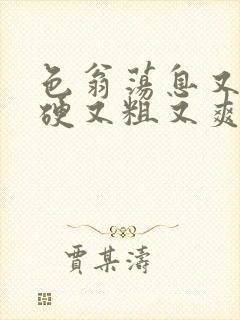 色翁荡息又
硬又粗又爽
贾某涛